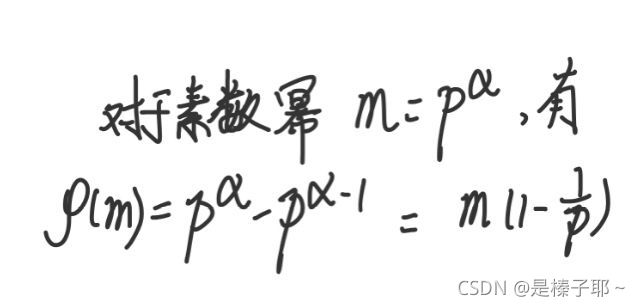 对于素数幂 m=p^α,有
φ(m)=p^α-p^{α-1} = m(1-\frac{1}{p})
CSDN @是榛子耶~